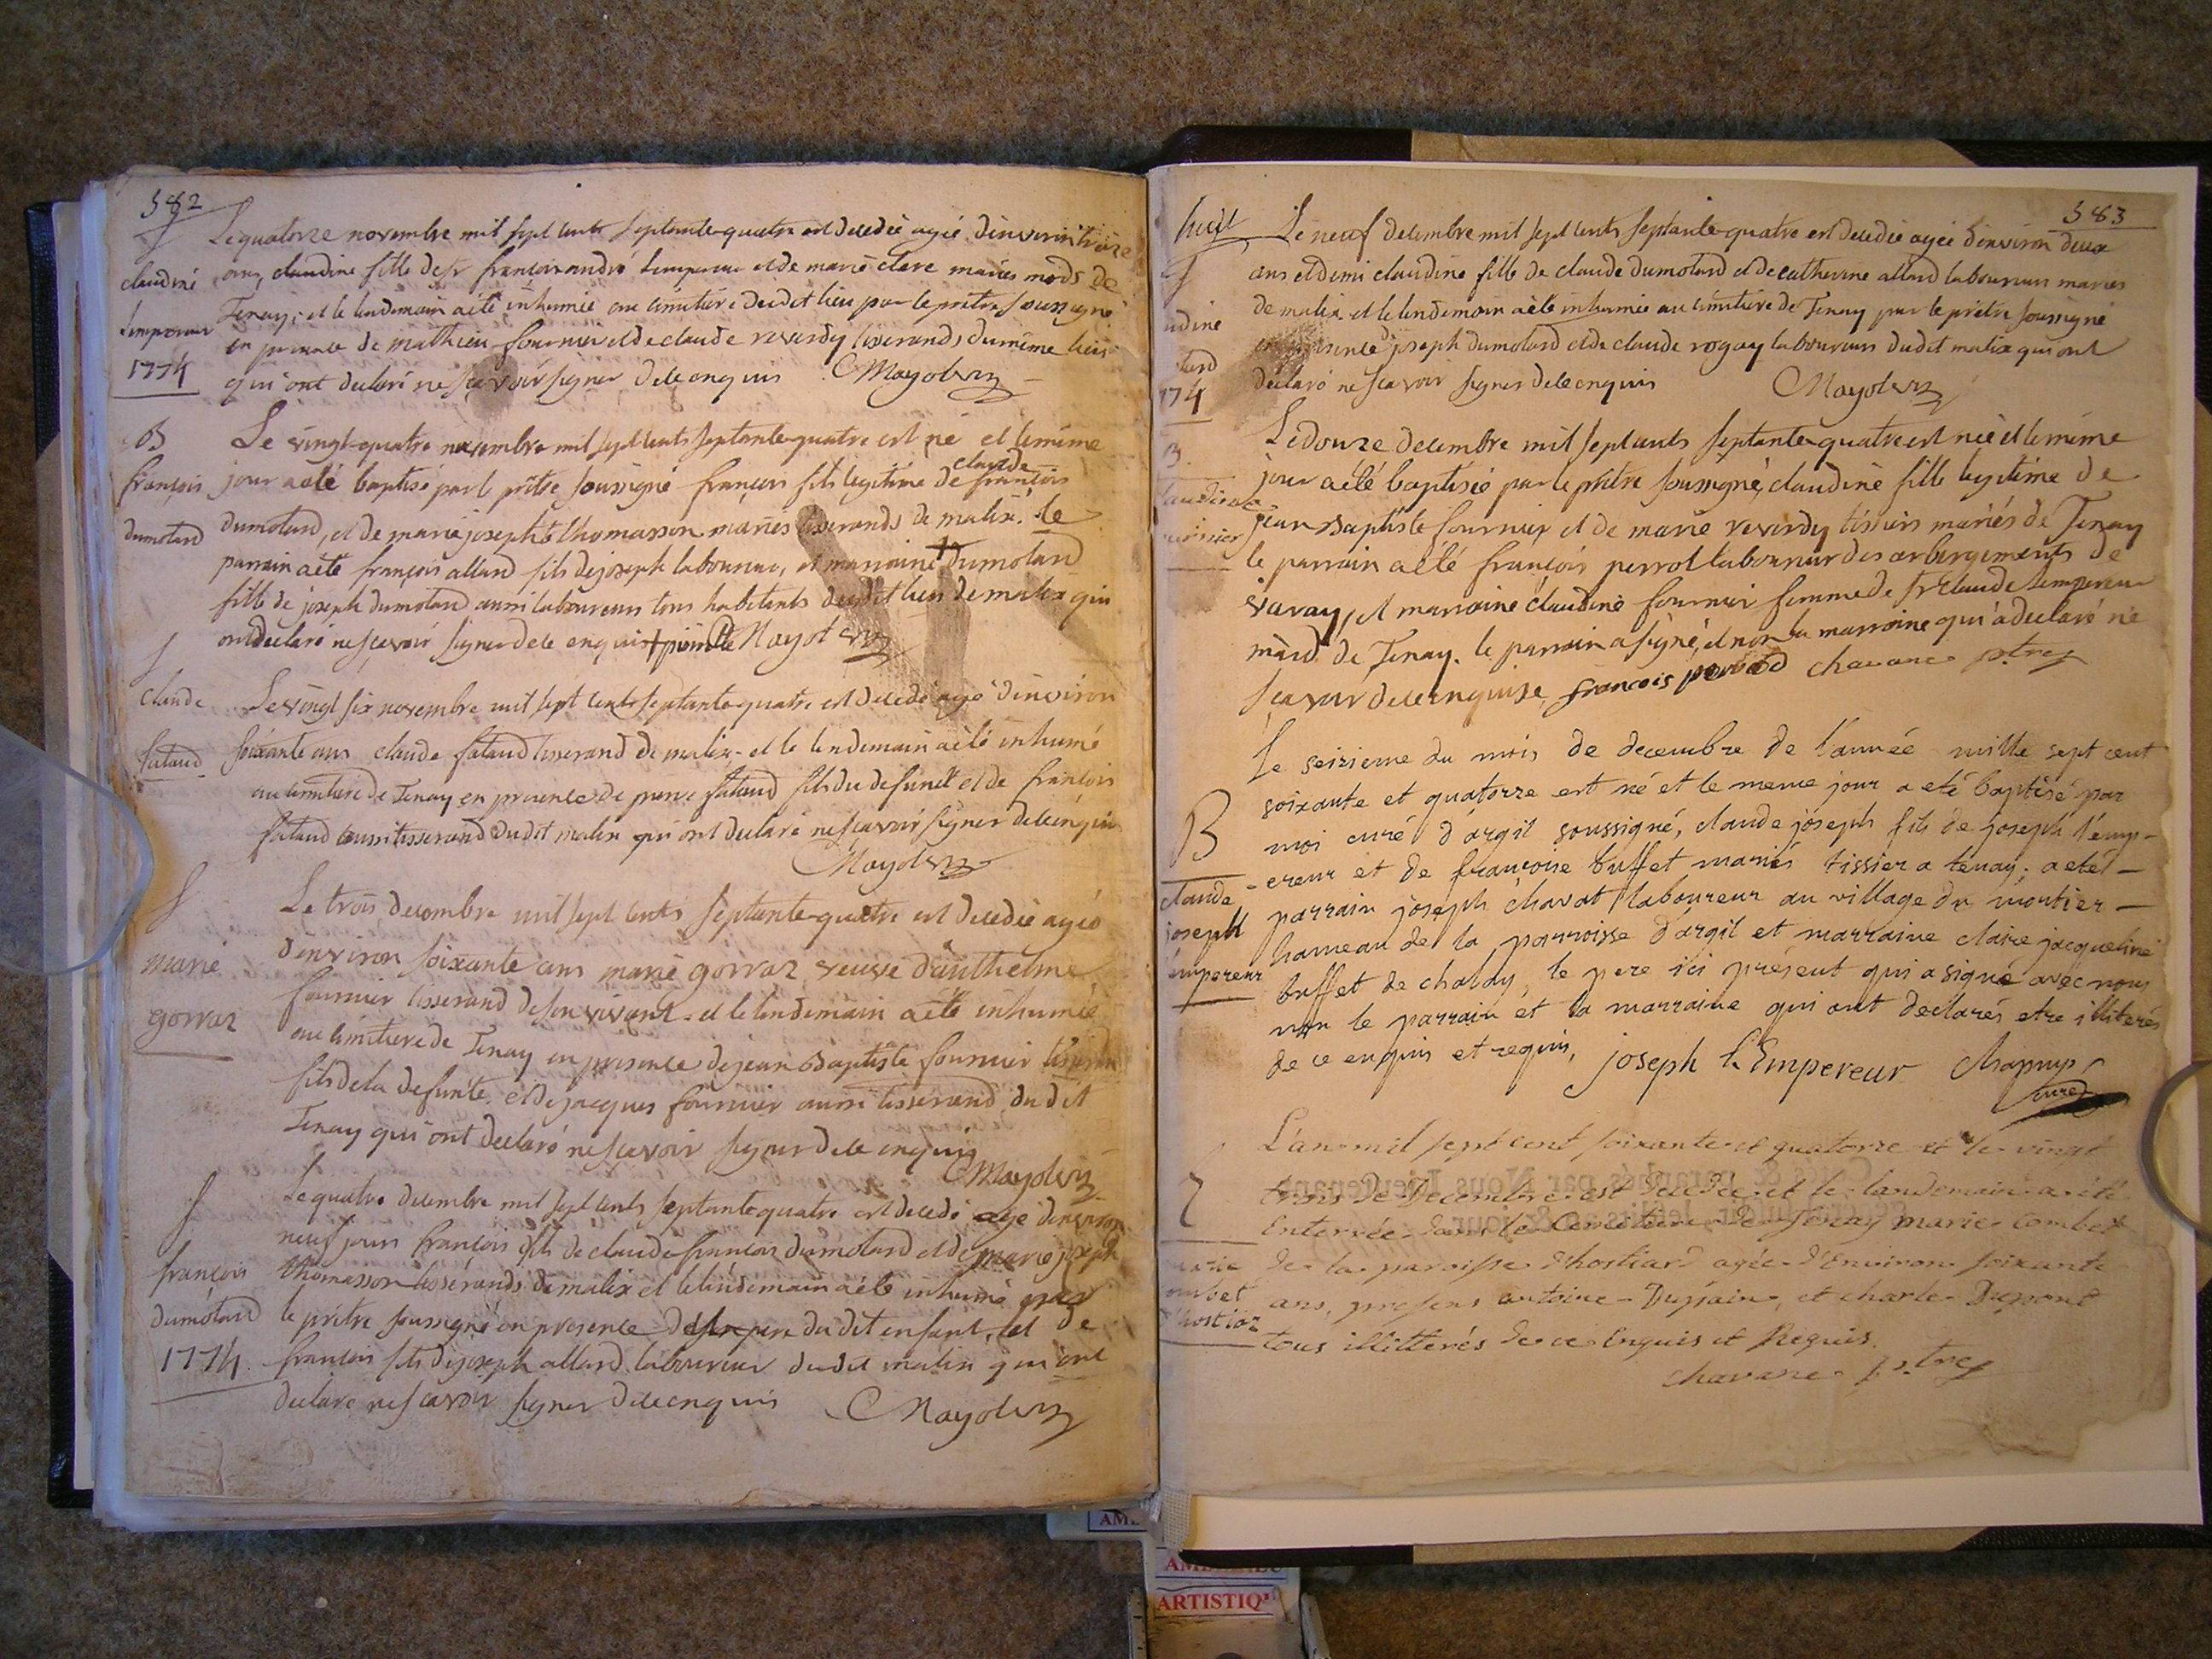 582
Le quatorze novembre mil sept cents septante-quatre est decedée agée d'environ treize
ans, claudine fille de sr françois andré Lempereur et de marie clere mariés mards de
Tenay; et le lendemain a été inhumée au cimitiere dudit lieu par le prêtre soussigné
en presence de mathieu fournier et de claude reverdy tisserands du même lieu
qui ont declaré ne sçavoir signer de ce enquis Mayot
claudine
Lempereur
1774
B
françois
dumolard
Le vingt-quatre novembre mil sept cents septante-quatre est né et le même
jour a été baptisé par le prêtre soussigné françois fils legitime de claude françois
dumolard, et de marie josephte thomasson mariés tisserands de malix. le
parrain a été françois allard fils de joseph laboureur, et marraine + dumolard
fille de joseph dumolard aussi laboureurs tous habitants dudit lieu de malix qui
ont declaré ne sçavoir signer de ce enquis + Mayot
claude
fataud
Le vingt six novembre mil sept cents septante-quatre est decedé agé d'environ
soixante ans claude fataud tisserand de malix, et le lendemain a été inhumé
au cimitiere de Tenay en presence de pierre fataud fils du defunct et de françois
fataud aussi tisserand dudit malix qui ont declaré ne sçavoir signer de ce enquis
Mayot
marie
gorraz
Le trois decembre mil sept cents septante-quatre est decedée agée
d'environ soixante ans marie gorraz veuve d'anthelme
fournier tisserand de son vivant. et le lendemain a été inhumée
au cimitiere de Tenay en presence de jean Baptiste fournier tisserand
fils de la defunte, et de jacques fournier aussi tisserand dudit
Tenay qui ont declaré ne sçavoir signer de ce enquis
Mayot
françois
dumolard
1774
Le quatre decembre mil sept cents septante quatre est decedé agé d'environ
neuf jours françois fils de claude françois dumolard et de marie joseph
thomasson tisserands de malix et le lendemain a été inhumé par
le prêtre soussigné en presence du pere dudit enfant, et de
françois fils de joseph allard laboureur dudit malix qui ont
declaré ne sçavoir signer de ce enquis Mayot
583
Le neuf decembre mil sept cents septante-quatre est decedée agée d'environ deux
ans et demi claudine fille de claude dumolard et de catherine allard laboureurs mariés
de malix et le lendemain a été inhumée au cimitiere de Tenay par le prêtre soussigné
en presence de joseph dumolard et de claude rogay laboureurs dudit malix qui ont
declaré ne sçavoir signer de ce enquis Mayot
udine
lard
774
Le douze decembre mil sept cents septante-quatre est née et le même
jour a été baptisée par le prêtre soussigné, claudine fille legitime de
jean Baptiste fournier et de marie reverdy tissiers mariés de Tenay
le parrain a été françois perrot laboureur des arbergements de
varay, et marraine claudine fournier femme de sr claude Lempereur
mard de Tenay. le parrain a signé, et non la marraine qui a declaré ne
sçavoir de ce enquise, françois chavane ptre
Le seizieme du mois de decembre de l'année mille sept cent
soixante et quatorze est né et le meme jour a eté baptisé par
moi curé d'argil soussigné, claude joseph fils de joseph l'emp-
-ereur et de françoise buffet mariés tissier a tenay; a eté-
parrain joseph chavat laboureur au village du montier-
hameau de la parroisse d'argil et marraine claire jacqueline
buffet de chaley, le pere ici présent qui a signé avec nous
non le parrain et la marraine qui ont declarés etre illiterés
de ce enquis et requis, joseph l'Empereur
curé
B
claude
joseph
empereur
L'an mil sept cent soixante et quatorze et le vingt
trois de Decembre est decedée et le landemain a été
Enterrée dans le Cemetiere de Tenay marie Combet
de la paroisse d'hostiaz agée d'Environ soixante
ans, presens antoine Dujain, et charle Dupont
tous illitterés de ce Enquis et Requis.
chavane ptre
ARTISTIQ